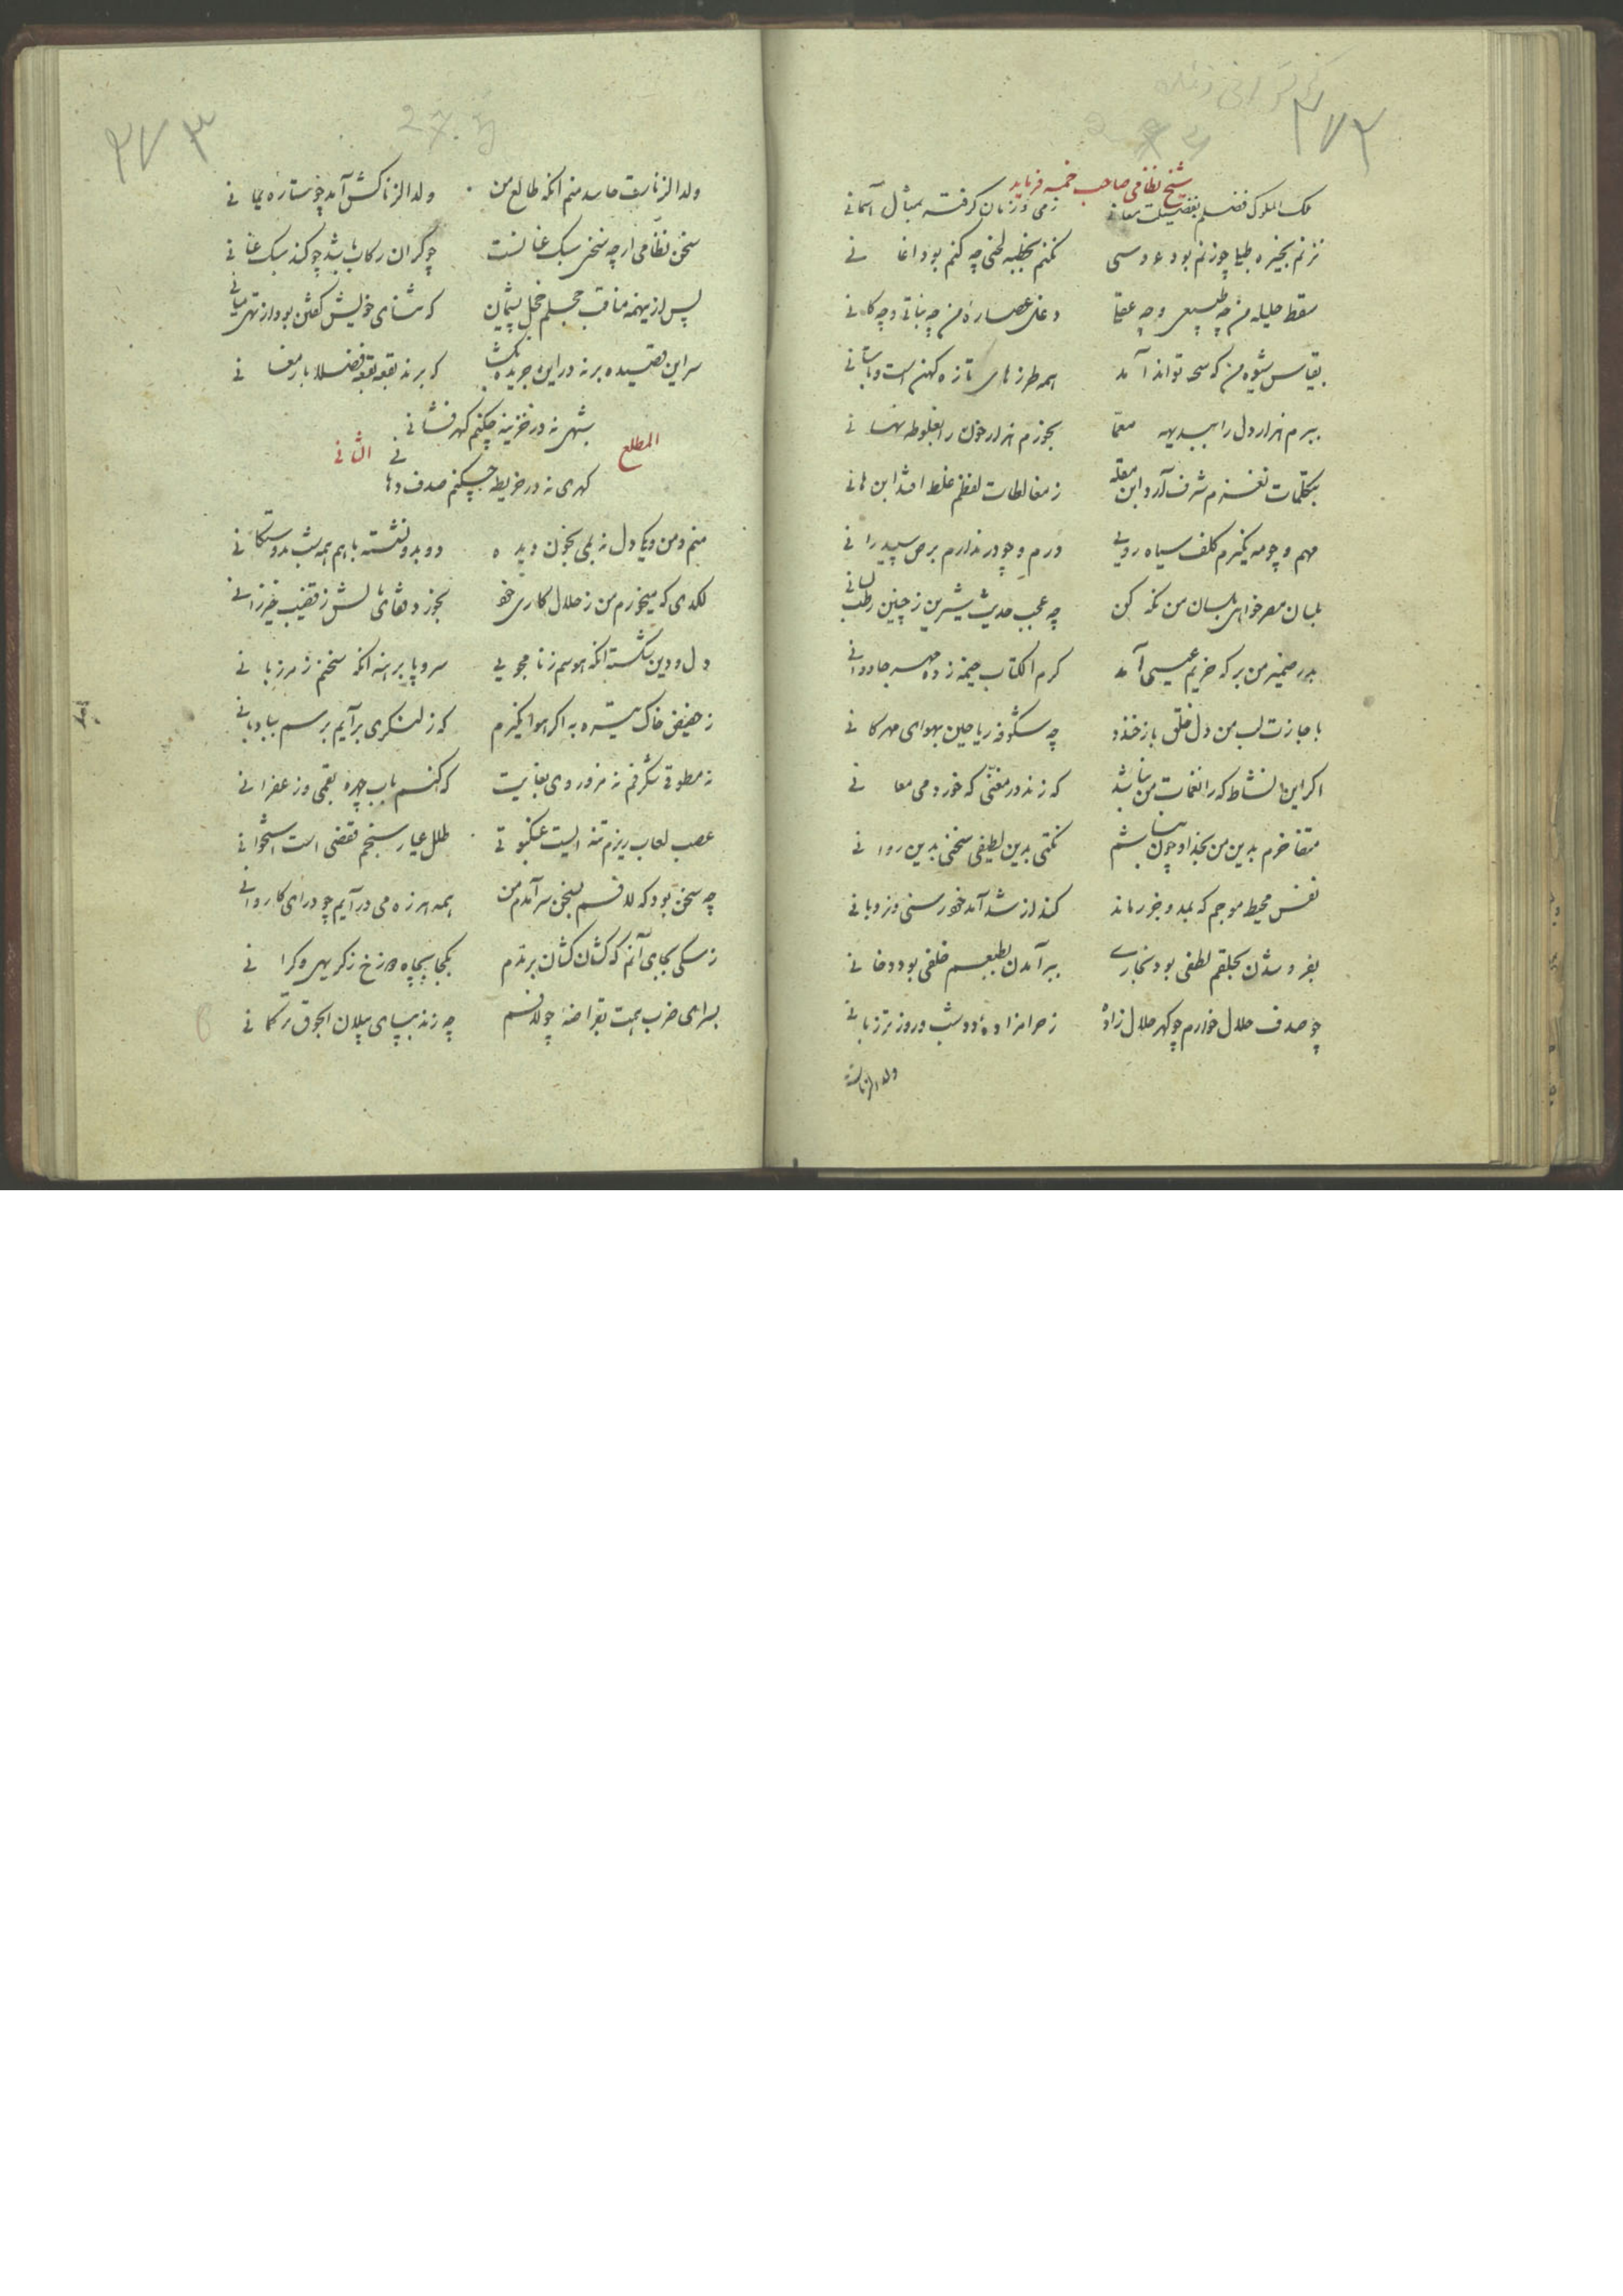 ۲۷۲
شیخ نظامی صاحب خمسه فرماید
ملک الملوک فضلم بفضیلت معانی زمی و زمان گرفته بمثال آسمانی
نزنم بخیره طیبا چو زنم بود عروسی نکنم بخطبه لحنی چه کنم بود اغانی
سقط حلیله من چه طبیعی و چه عقلی دغلی عصارهٔ من چه نباتی و چه کانی
بقیاس شیوه من که نتواند آمد همه طرزهای تازه کهن است و باستانی
ببرم هزار دل را ببدیهه معما بخورم هزار خون را بغلوطه نهانی
بکلمات نغزم شرف آرد ابن مقله ز مغالطات لفظم غلط افتد ابن هانی
مهم و چو مه نگیرم کلف سیاه رویی درم و چو در ندارم برص سپید رانی
بلسان من نگه کن چه عجب حدیث شیرین ز چنین رطب لسانی
بدر ضمیر من بر که خر عیسی آمد کرم الکتاب ختمه زده مهر جاودانی
باجازت لب من دل خلق باز خندد چه شگوفه ریاحین بهوای مهرگانی
اگر این نشاط که را نغمات من نباشد که زند در مغنی که خورد می مغانی
متفاخرم بدین من بخدا و چون نباشم نکتی بدین لطیفی سخنی بدین روانی
نفس محیط موجم که بمد و جزر ماند کند از شد آمد خود سنی و زوبانی
بفرو شدن بحلقم لطفی بود بخاری ببر آمدن بطبعم خلفی بود دخانی
چو صدف حلال خوارم چو گهر حلال زاده ز حرامزاده دو شب و روز بر زبانی
ولد الزناست
۲۷۳
ولد الزناست حاسد منم آنکه طالع من ولد الزنا کش آمد چو ستاره یمانی
سخن نظامی ار چه سخنی سبک عنانست چو گران رکاب باشد چو کند سبک عنانی
پس ازینهمه مناقب خجلم خجل پشیمان که ثنای خویش گفتن بود از تهی میانی
سر این قصیده بر نه در این جریده که برند بقعه بقعه فضلا بارمغانی
المطلع الثانی
بشهی نه در خزینه چکنم گهر فشانی
گهری نه در خریطه چکنم صدف دهانی
منم و من و یکی دل نه بلی بخون دیده دو بدو نشسته با هم همه شب بدوستگانی
لگدی که میخورم من ز حلال کاری خود بخورد
دل و دین شکسته آنکه هوسم ز نامجویی سر و پا برهنه آنکه سخنم ز مرزبانی
ز حضیض خاک تیره به اگر هوا نگیرم که ز لنگری برآیم برسم ببادبانی
نه مطوقی شگرفم نه مزوری بغایت که کنم باب چهره بقمی و زعفرانی
عصب لعاب ریزم تنه ایست عنکبوتی طلل عیار سنجم قفصی است استخوانی
چه سخن بود که لافم بسخن سرآمدم من همه هرزه می درآیم چو درای کاروانی
ز سگی بجای آنم که کشان کشان برندم بکجا بچاه دوزخ ز کریهی و گرانی
بسرای ضرب همت بقراضهٔ چو لافم چه زند بپای پیلان الچوق ترکمانی